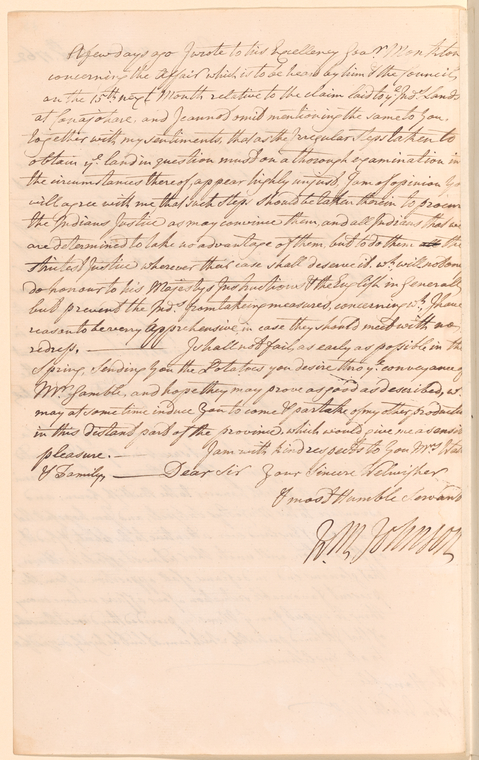 A few days ago I wrote to his Excellency Govr. Monckton
concerning the affair which is to be heard by him & the Council,
on the 15th next Month relative to the claim laid to ye. Inds. Lands
at Conajohare. and I cannot omit mentioning the same to You
together with my sentiments, that as the Irregular steps taken to
obtain ye. land in question must on a thorough examination in
the circumstances thereof, appear highly unjust, I am of opinion Yo
will agree with me that such steps should be taken therein to procure
the Indians Justice as may convince them, and all Indians that we
are determined to take no advantage of them, but to do them the
strictest Justice wherever their case shall deserve it wh. will not on
do honour to his Majestys Instructions & the English in Generall
but prevent the Inds. from taking measures, concerning wh. I have
reason to be very apprehensive in case they should meet with no
redress. — I shall not fail as early as possible in the
Spring, Sending You the Potatoes you desire thro ye. conveyance of
Mr. Gamble, and hope they may prove as good as described, wh.
may at some time induce You to come & partake of my other productio
in this distant part of the province, which would give me a sensib
pleasure. — I am with kind respects to You Mrs.
& Family, — Dear Sir Your Sincere Welwisher
& most Humble Servant
Wm. Johnson